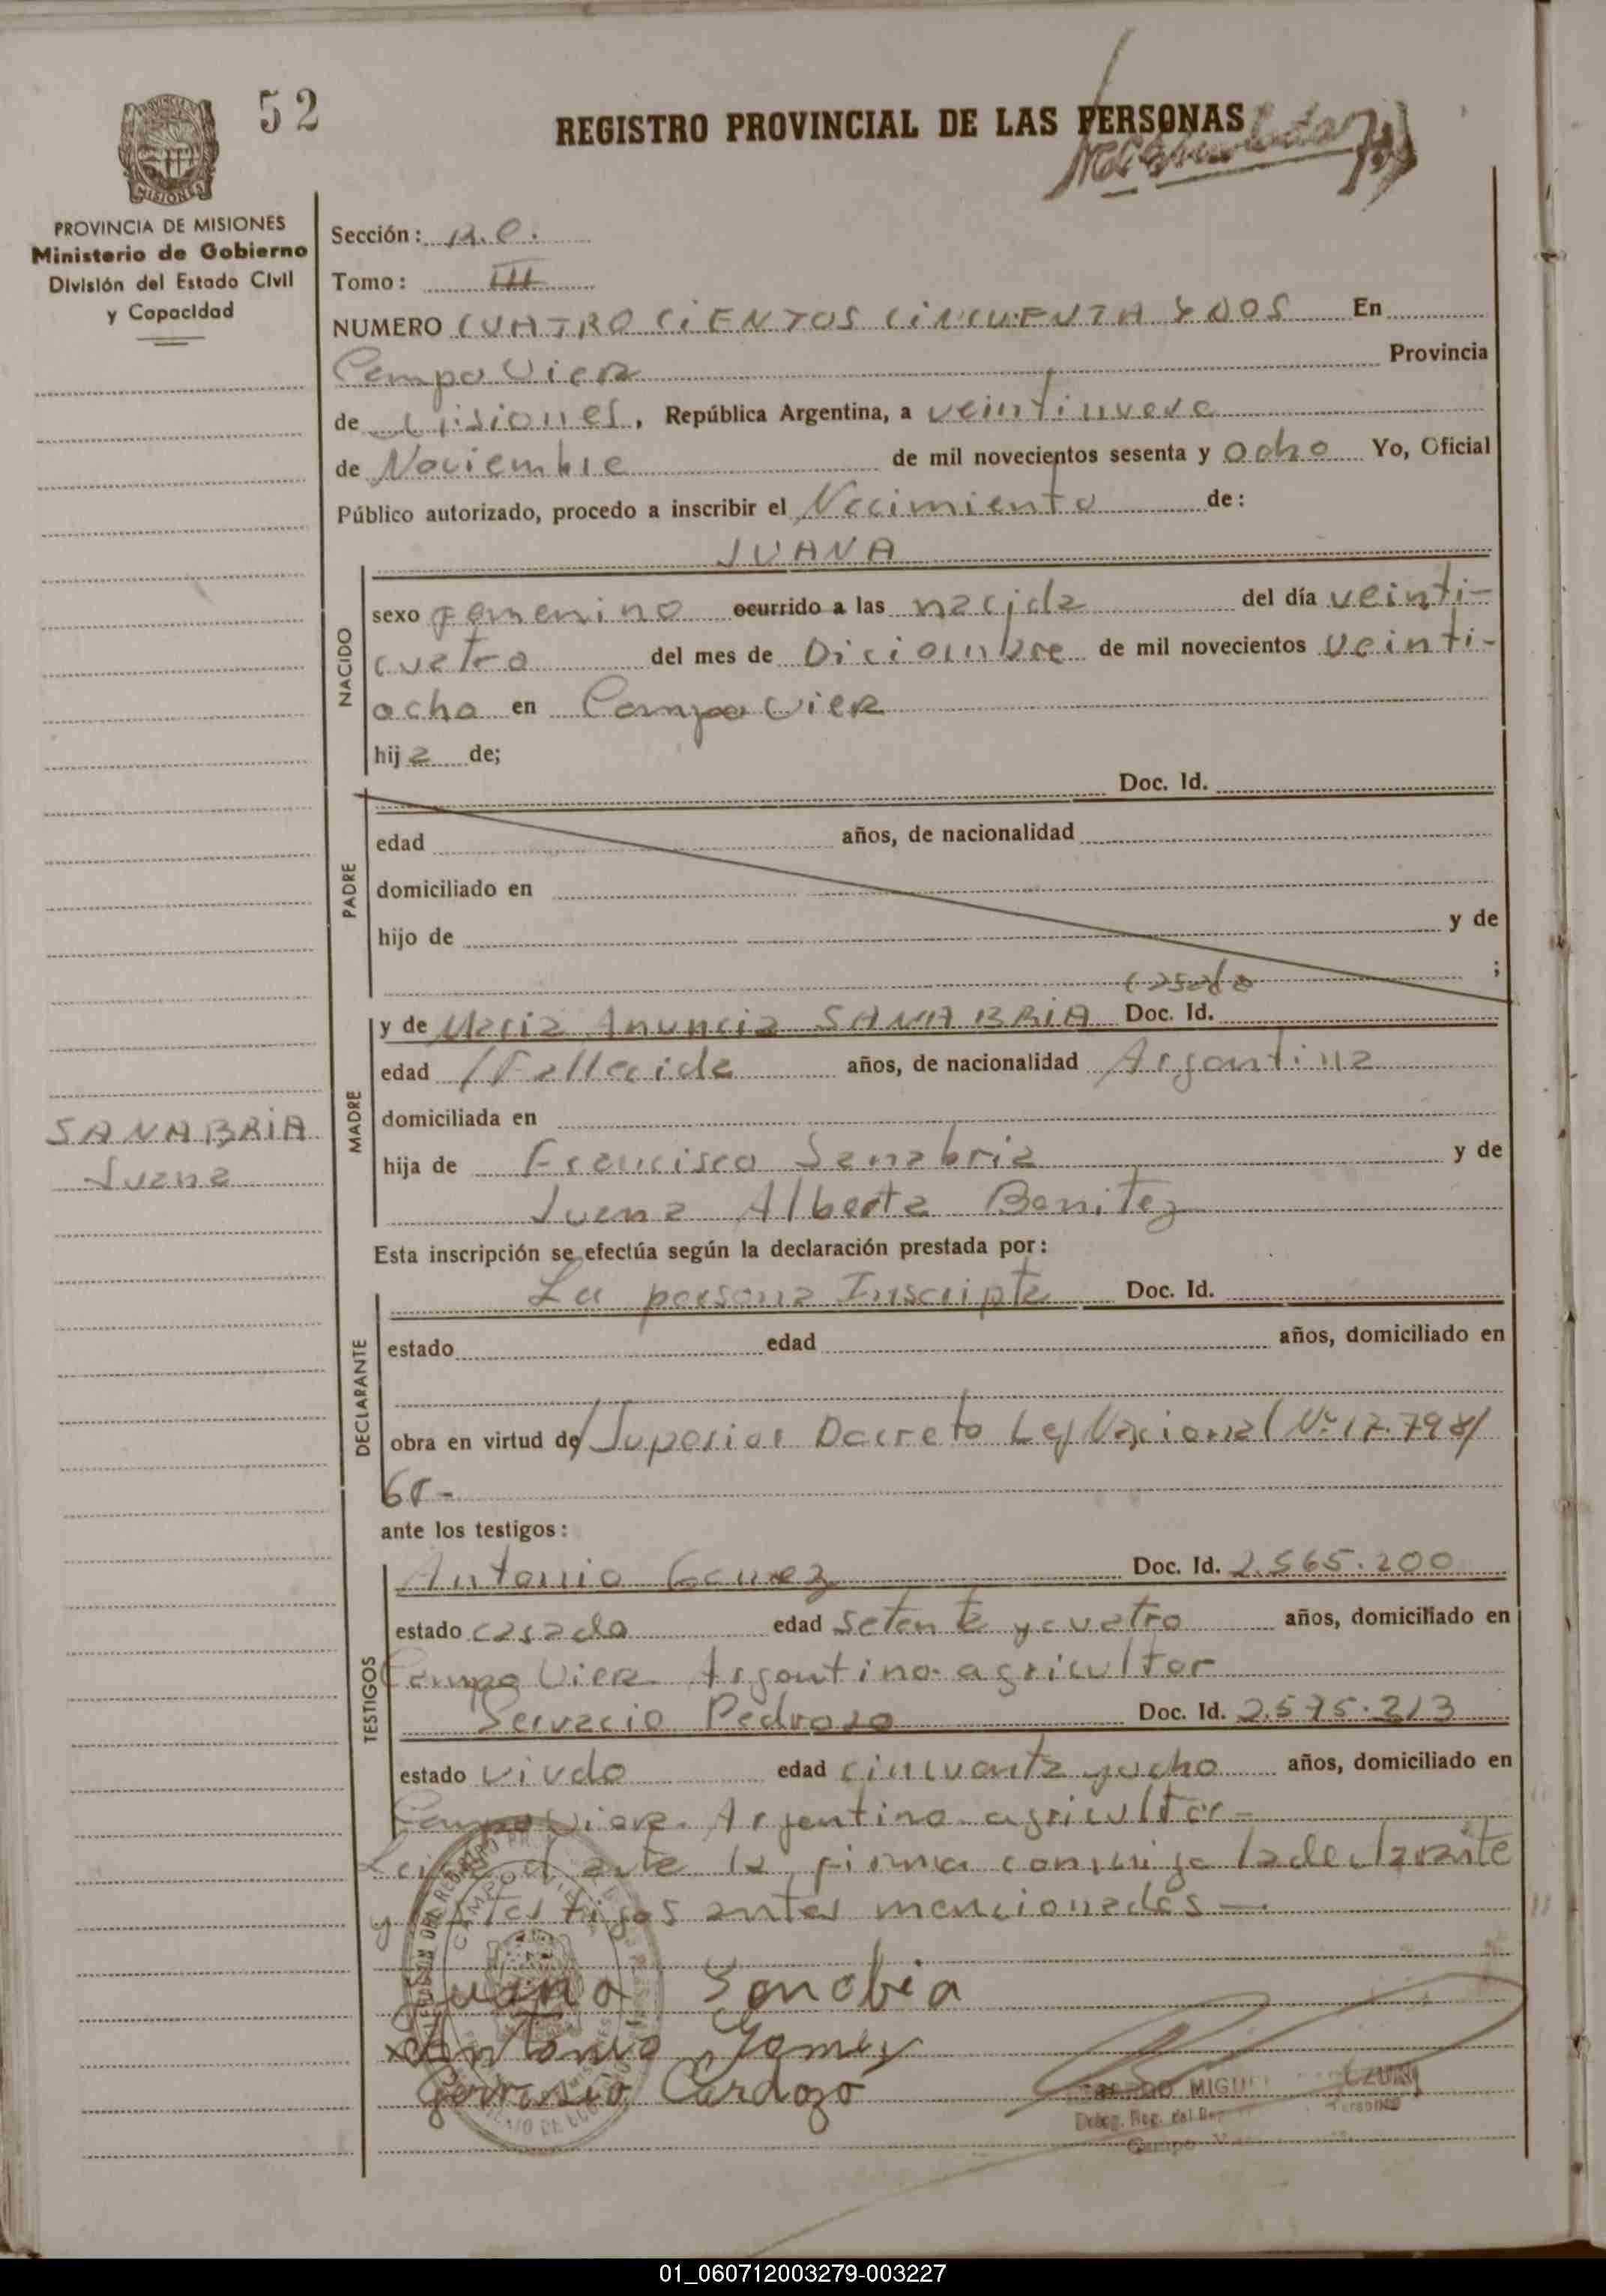 52
REGISTRO PROVINCIAL DE LAS PERSONAS
MISIONES
PROVINCIA DE MISIONES
Ministerio de Gobierno
División del Estado Civil
y Capacidad
Sección: R.C.
Tomo: III
NUMERO CUATRO CIENTOS CINCUENTA Y DOS En
Campo Viera Provincia
de Misiones, República Argentina, a veintinueve
de Noviembre de mil novecientos sesenta y ocho Yo, Oficial
Público autorizado, procedo a inscribir el Nacimiento de:
JUANA
NACIDO
sexo femenino ocurrido a las nacida del día veinti-
cuatro del mes de Diciembre de mil novecientos veinti-
ocho en Campo Viera
hija de;
Doc. Id.
PADRE
edad años, de nacionalidad
domiciliado en
hijo de y de
;
MADRE
y de Maria Anuncia SANABRIA Doc. Id.
edad /Fallecida años, de nacionalidad Argentina
domiciliada en
SANABRIA
Juana
hija de Francisco Sanabria y de
Juana Alberta Benitez
Esta inscripción se efectúa según la declaración prestada por:
La persona Inscripta Doc. Id.
DECLARANTE
estado edad años, domiciliado en
obra en virtud de/Superior Decreto Ley Nacional Nº 17.798/
68-
ante los testigos:
TESTIGOS
Antonio Gomez Doc. Id. 2.565.200
estado casado edad setenta y cuatro años, domiciliado en
Campo Viera Argentino agricultor
Servacio Pedrozo Doc. Id. 2.575.213
estado viudo edad cincuenta y ocho años, domiciliado en
Campo Viera. Argentino agricultor-
Leida el acta la firma conmigo la declarante
y los testigos antes mencionados-
Juana Sanabia
Antonio Gomez
Gervasio Cardozo
MIGUEL
Deleg. Reg. del
Campo
01_060712003279-003227